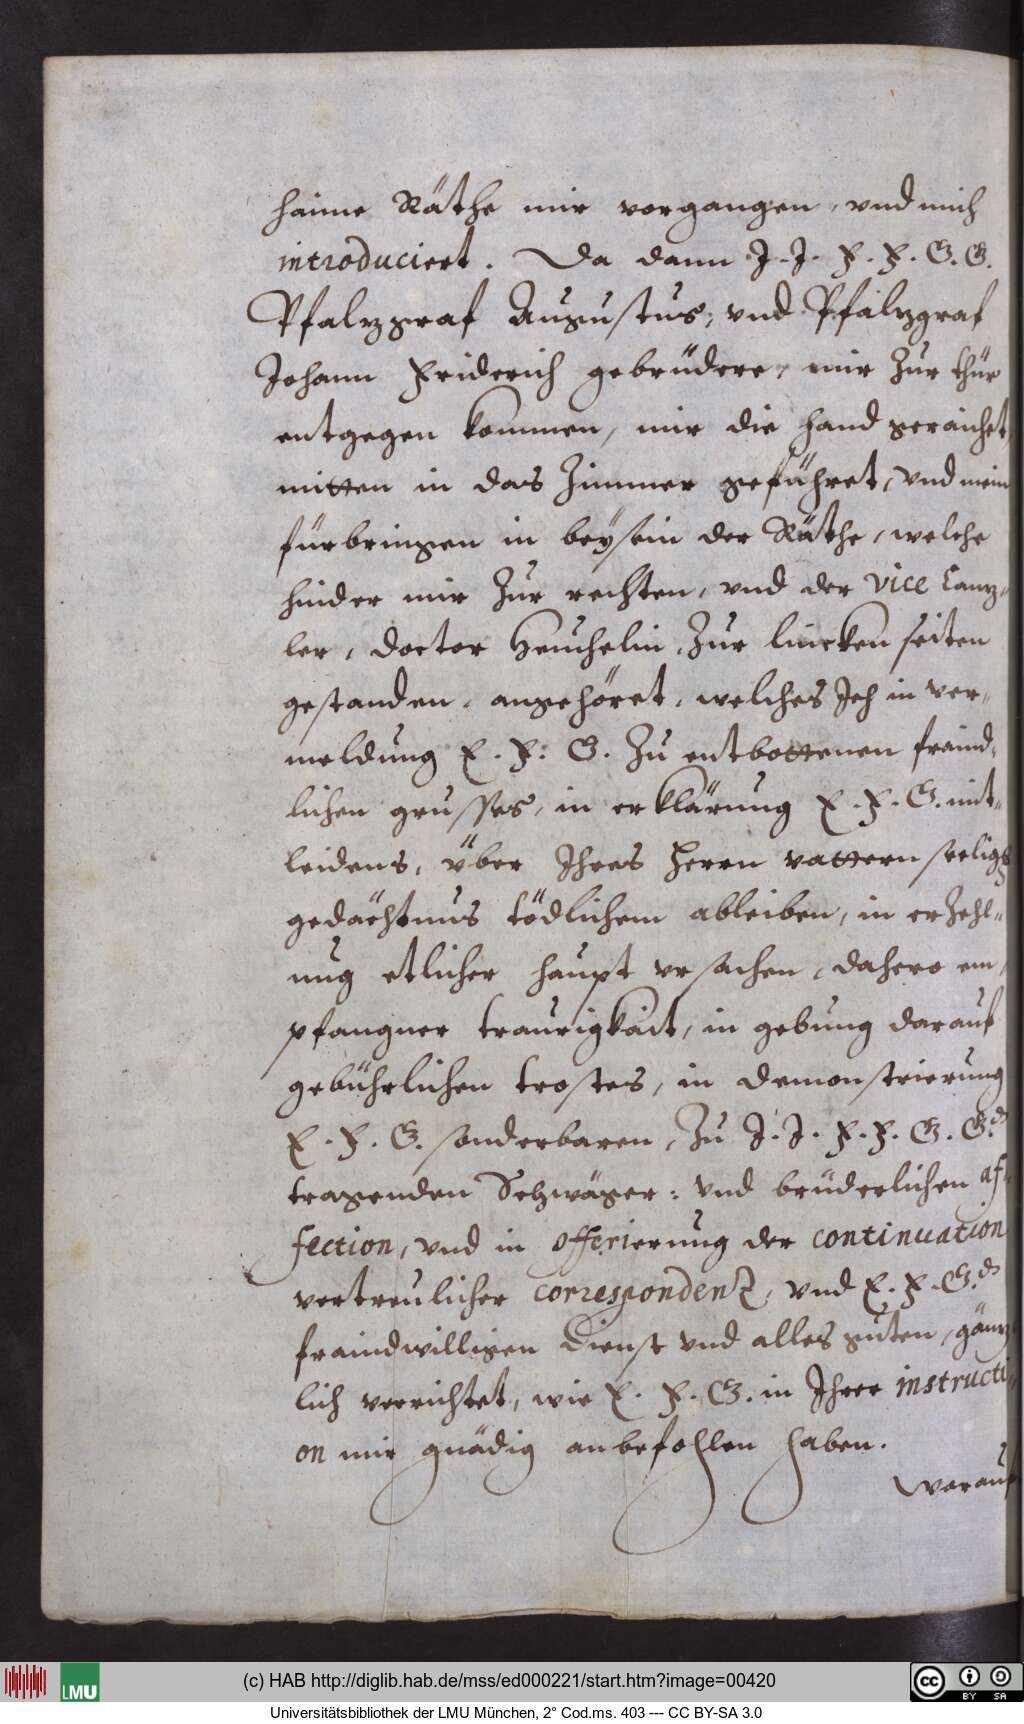 haime Räthe mir vorgangen, vnd mich
introduciert. Da dann J. J. F. F. G. G.
Pfalzgraf Augustus, vnd Pfalzgraf
Johann Friderich gebrüdere, mir Zur thür
entgegen kommen, mir die hand geraichet,
mitten in das Zimmer geführet, vnd mein
fürbringen in beysein der Räthe, welche
hinder mir Zur rechten, vnd der Vice Canz-
ler, Doctor Heuchelin, Zur lincken seiten
gestanden, angehöret, welches Jch in ver-
meldung E. F. G. Zu entbottenen fraind-
lichen grusses, in erklärung E. F. G. mit-
leidens, über Jhres Herrn vattern seeligs
gedächtnus tödlichem ableiben, in erZehl-
ung etlicher haupt vrsachen, dahero em-
pfangner traurigkait, in gebung darauf
gebührlichen trostes, in demonstrierung
E. F. G. sonderbaren, Zu J. J. F. F. G. G.
tragenden Schwäger: vnd brüderlichen af-
fection, vnd in offerierung der continuation
vertreulicher correspondentz, vnd E. F. G.
fraindwilligen Dienst vnd alles guten, gäntz-
lich verrichtet, wie E. F. G. in Jhrer instructi-
on mir gnädig anbefohlen haben.
Worauf
(c) HAB http://diglib.hab.de/mss/ed000221/start.htm?image=00420
LMU
cc BY SA
Universitätsbibliothek der LMU München, 2° Cod.ms. 403 --- CC BY-SA 3.0